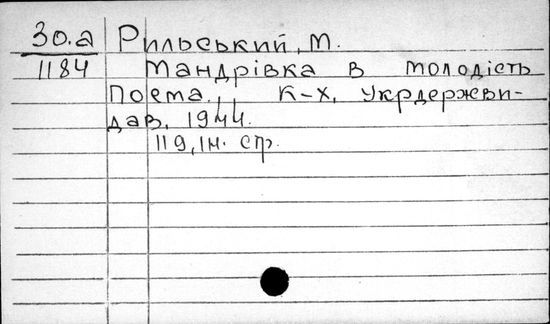 Зо.а Рильський, М.
1184 Мандрівка в молодість
Поема. К-Х, Укрдержви-
дав, 1944.
119, Ін. стр.